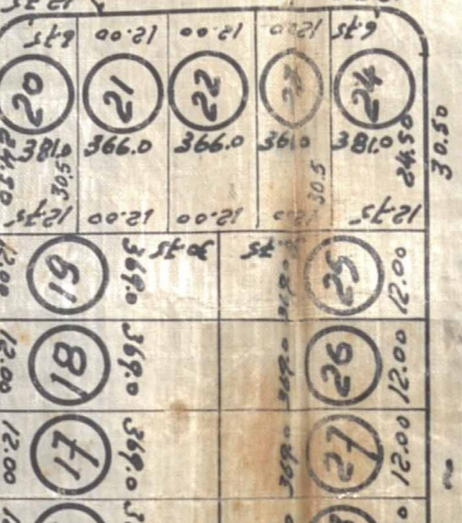 6.75 12.00 12.00 12.00 6.75
20 21 22 23 24
381.0 366.0 366.0 381.0
24.50 30.5 30.5 24.50 30.50
12.75 12.00 12.00 12.75
30.75
12.00 19 369.0 25 12.00
12.00 18 369.0 369.0 26 12.00
12.00 17 369.0 369.0 27 12.00